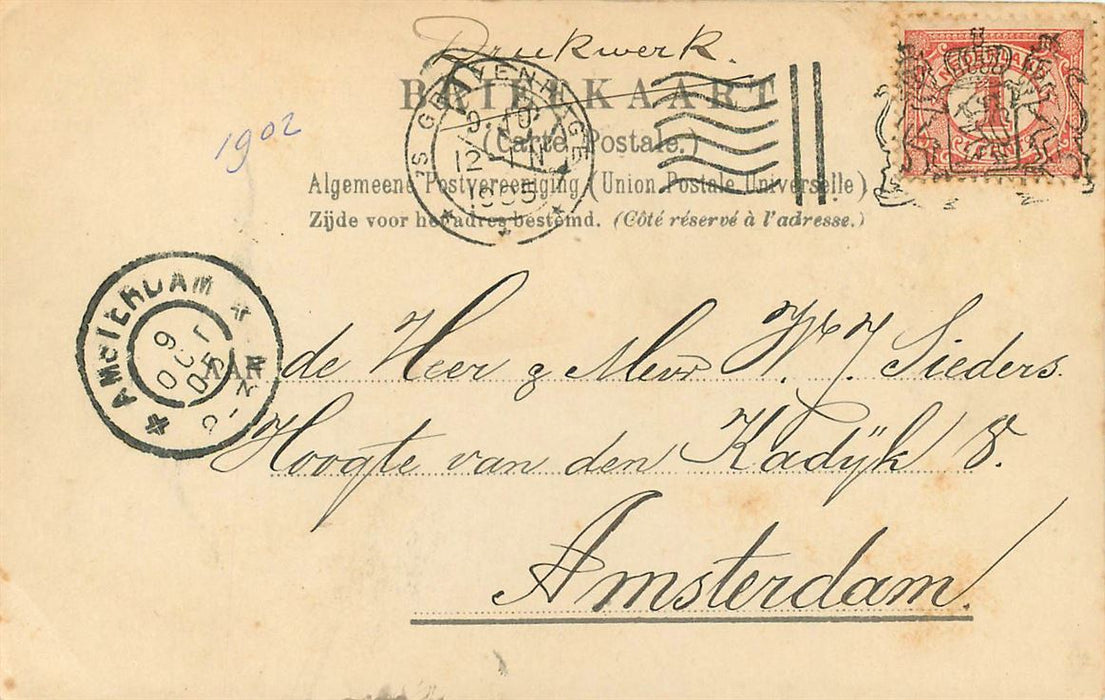 Drukwerk.
BRIEFKAART
(Carte Postale.)
Algemeene Postvereeniging (Union Postale Universelle)
Zijde voor het adres bestemd. (Côté réservé à l'adresse.)
1902
'S GRAVENHAGE
12-1 N
1905
NEDERLAND
1
AMSTERDAM
9 OCT 05
AAN
de Heer & Mevr W. J. Sieders.
Hoogte van den Kadijk 8.
Amsterdam.